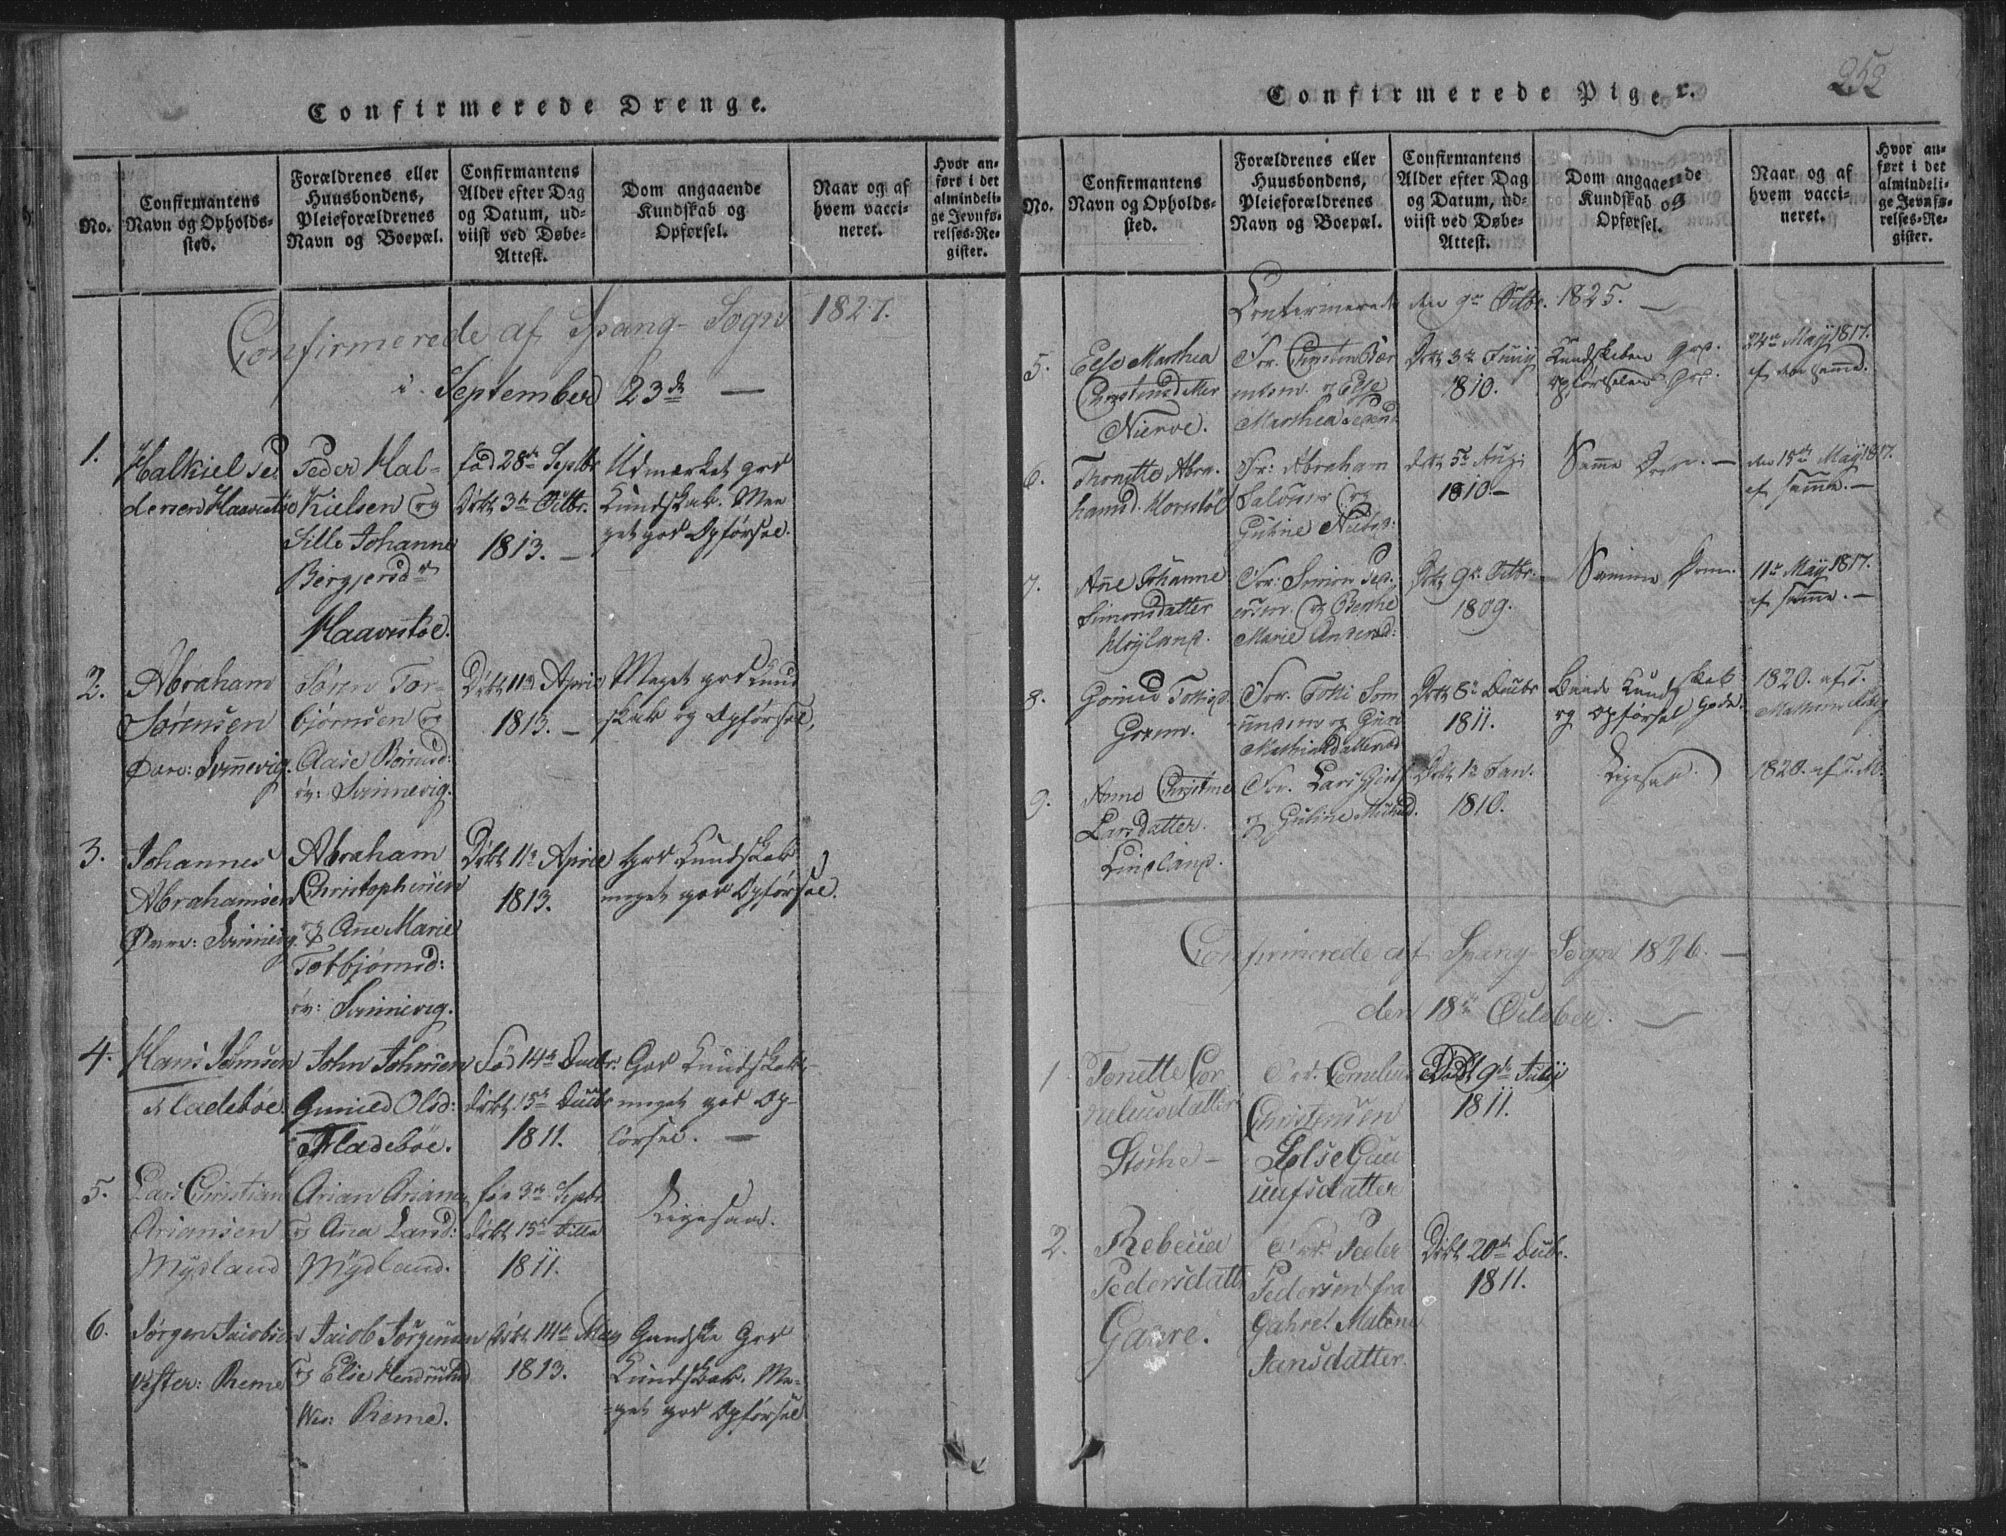 Confirmerede Drenge.
No.
Confirmantens Navn og Opholds-sted.
Forældrenes eller Huusbondens, Pleieforældrenes Navn og Boepæl.
Confirmantens Alder efter Dag og Datum, ud-viist ved Døbe-Attest.
Dom angaaende Kundskab og Opførsel.
Naar og af hvem vacci-neret.
Hvor an-ført i det almindeli-ge Jevnfø-relses-Re-gister.
Confirmerede af Spang-Sogn 1827.
i September 23de —
1.
Halkiel Pe
dersen Haavestøe
Peder Hal-
Kielsen og
Sille Johanne
Bergjersdr
Haavestøe.
fød 28de Septbr
Døbt 3de Octbr.
1813. —
Udmærket god
Kundskab. Me
get god Opførsel.
2.
Abraham
Sørensen
Øvre: Svinnevig.
Søren Tor-
bjørnsen og
Aase
øv: Svinnevig.
Døbt 11te April
1813. —
Meget god Kund
skab og Opførsel,
3.
Johannes
Abrahamsen
Øvre: Svinnevig.
Abraham
Christophersen
og Ane Marie
Torbjørnsd:
øv: Svinnevig.
Døbt 11te April
1813.
God Kundskab
meget god Opførsel.
4.
Hans Johnsen
Fladebøe.
John Johnsen
Gunild Olsd:
Fladebøe.
Fød 14de Decbr.
Døbt 15de Decbr
1811.
God Kundskab,
meget god Op-
førsel. —
5.
Lars Christian
Ariansen
Mydland
Arian Arians
og Ana Larsd:
Mydland.
fød 3de Septbr
Døbt 15de Ditto
1811.
Ligesaa.
6.
Jørgen Jacobsen
Vester: Reme
Jacob Jørgensen
og Else
Ves: Reme.
Døbt 14de May
1813.
Gandske God
Kundskab. Me-
get god Opførsel
Confirmerede Piger.
252
No.
Confirmantens Navn og Opholds-sted.
Forældrenes eller Huusbondens, Pleieforældrenes Navn og Boepæl.
Confirmantens Alder efter Dag og Datum, ud-viist ved Døbe-Attest.
Dom angaaende Kundskab og Opførsel.
Naar og af hvem vacci-neret.
Hvor an-ført i det almindeli-ge Jevnfø-relses-Re-gister.
Confirmerede den 9de Octbr. 1825. —
5.
Else Marthea
Christensdatter
For.
og Else
Marthea
Døbt 3de Juny
1810.
Kundskaben god.
Opførselen god.
24de May 1817.
af den samme.
6.
Abra
hamsd.
For: Abraham
Salvesen og
Guline
Døbt 5te Aug:
1810. —
Samme Dom. —
den 15de May 1817.
af samme. —
7.
Ane Johanne
Simonsdatter
Høyland.
For: Simon Ped
ersen og Berthe
Marie
Døbt 9de Octbr.
1809.
Samme Dom.
11te May 1817.
af samme. —
8.
Gunild
For.
og
Døbt 8de Decbr
1811.
Baade Kundskab
og Opførsel Gode.
1820. af
9.
Anne Christine
Larsdatter
For. Lars
og Guline
Døbt 1te Jan.
1810.
Ligesaa.
1820. af
Confirmerede af Spang Sogn 1826. —
den 18de October. —
1
Tonette Cor
neliusdatter
For. Cornelius
Christensen
Else
datter
Døbt 9de July
1811.
2.
Rebecca
Pedersdatt
Gahre.
For. Peder
Pedersen fra
Gahre. Malene
Jansdatter.
Døbt 20de Decbr.
1811.